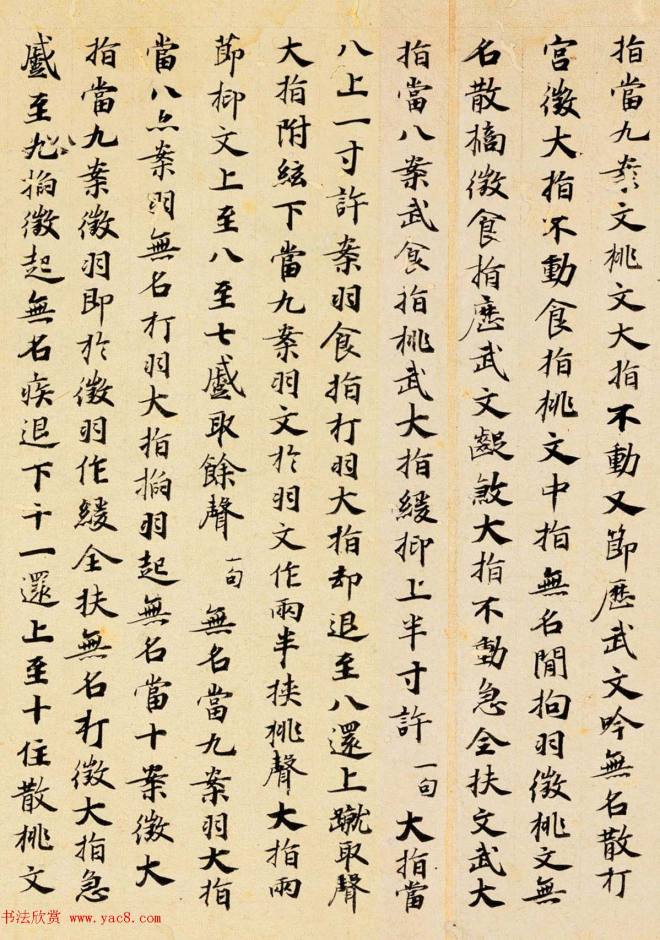 指當九案文桃文大指不動又節歷武文吟無名散打
宮徵大指不動食指桃文中指無名閒拘羽徵桃文無
名散摘徵食指歷武文齪煞大指不動急全扶文武大
指當八案武食指桃武大指緩抑上半寸許一句大指當
八上一寸許案羽食指打羽大指却退至八還上蹴取聲
大指附絃下當九案羽文於羽文作兩半挾桃聲大指兩
節抑文上至八至七蹙取餘聲一句無名當九案羽大指
當八案羽無名打羽大指掐羽起無名當十案徵大
指當九案徵羽即於徵羽作緩全扶無名打徵大指急
蹙至八掐徵起無名疾退下十一還上至十住散桃文
书法欣赏 www.yac8.com